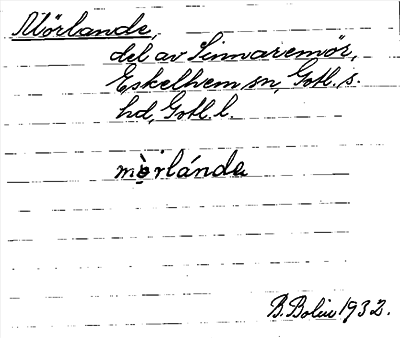 Mörlande,
del av Linnaremör,
Eskelhem sn, Gotl. s.
hd, Gotl. l.
mö̀rlánda
B. Bolin 1932.